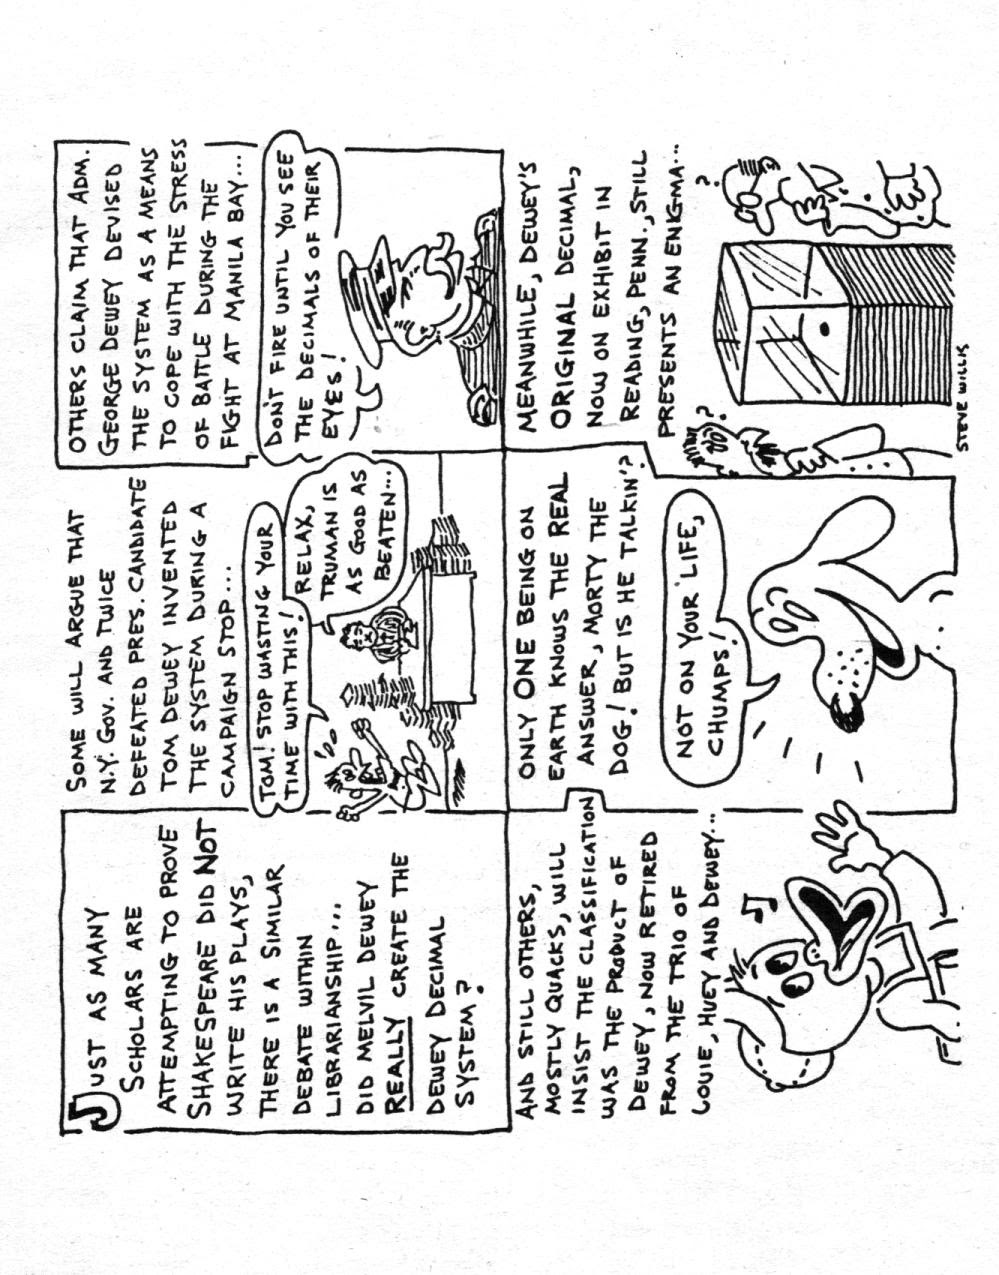 JUST AS MANY
SCHOLARS ARE
ATTEMPTING TO PROVE
SHAKESPEARE DID NOT
WRITE HIS PLAYS,
THERE IS A SIMILAR
DEBATE WITHIN
LIBRARIANSHIP...
DID MELVIL DEWEY
REALLY CREATE THE
DEWEY DECIMAL
SYSTEM?
SOME WILL ARGUE THAT
N.Y. GOV. AND TWICE
DEFEATED PRES. CANDIDATE
TOM DEWEY INVENTED
THE SYSTEM DURING A
CAMPAIGN STOP...
TOM! STOP WASTING YOUR
TIME WITH THIS!
RELAX,
TRUMAN IS
AS GOOD AS
BEATEN...
OTHERS CLAIM THAT ADM.
GEORGE DEWEY DEVISED
THE SYSTEM AS A MEANS
TO COPE WITH THE STRESS
OF BATTLE DURING THE
FIGHT AT MANILA BAY...
DON'T FIRE UNTIL YOU SEE
THE DECIMALS OF THEIR
EYES!
AND STILL OTHERS,
MOSTLY QUACKS, WILL
INSIST THE CLASSIFICATION
WAS THE PRODUCT OF
DEWEY, NOW RETIRED
FROM THE TRIO OF
LOUIE, HUEY AND DEWEY...
ONLY ONE BEING ON
EARTH KNOWS THE REAL
ANSWER, MORTY THE
DOG! BUT IS HE TALKIN'?
NOT ON YOUR LIFE,
CHUMPS!
MEANWHILE, DEWEY'S
ORIGINAL DECIMAL,
NOW ON EXHIBIT IN
READING, PENN., STILL
PRESENTS AN ENIGMA...
?
?
STEVE WILLIS